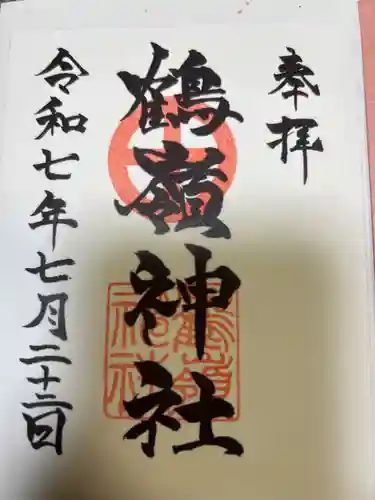 奉拝
鶴嶺神社
令和七年七月二十二日
鶴嶺
神社